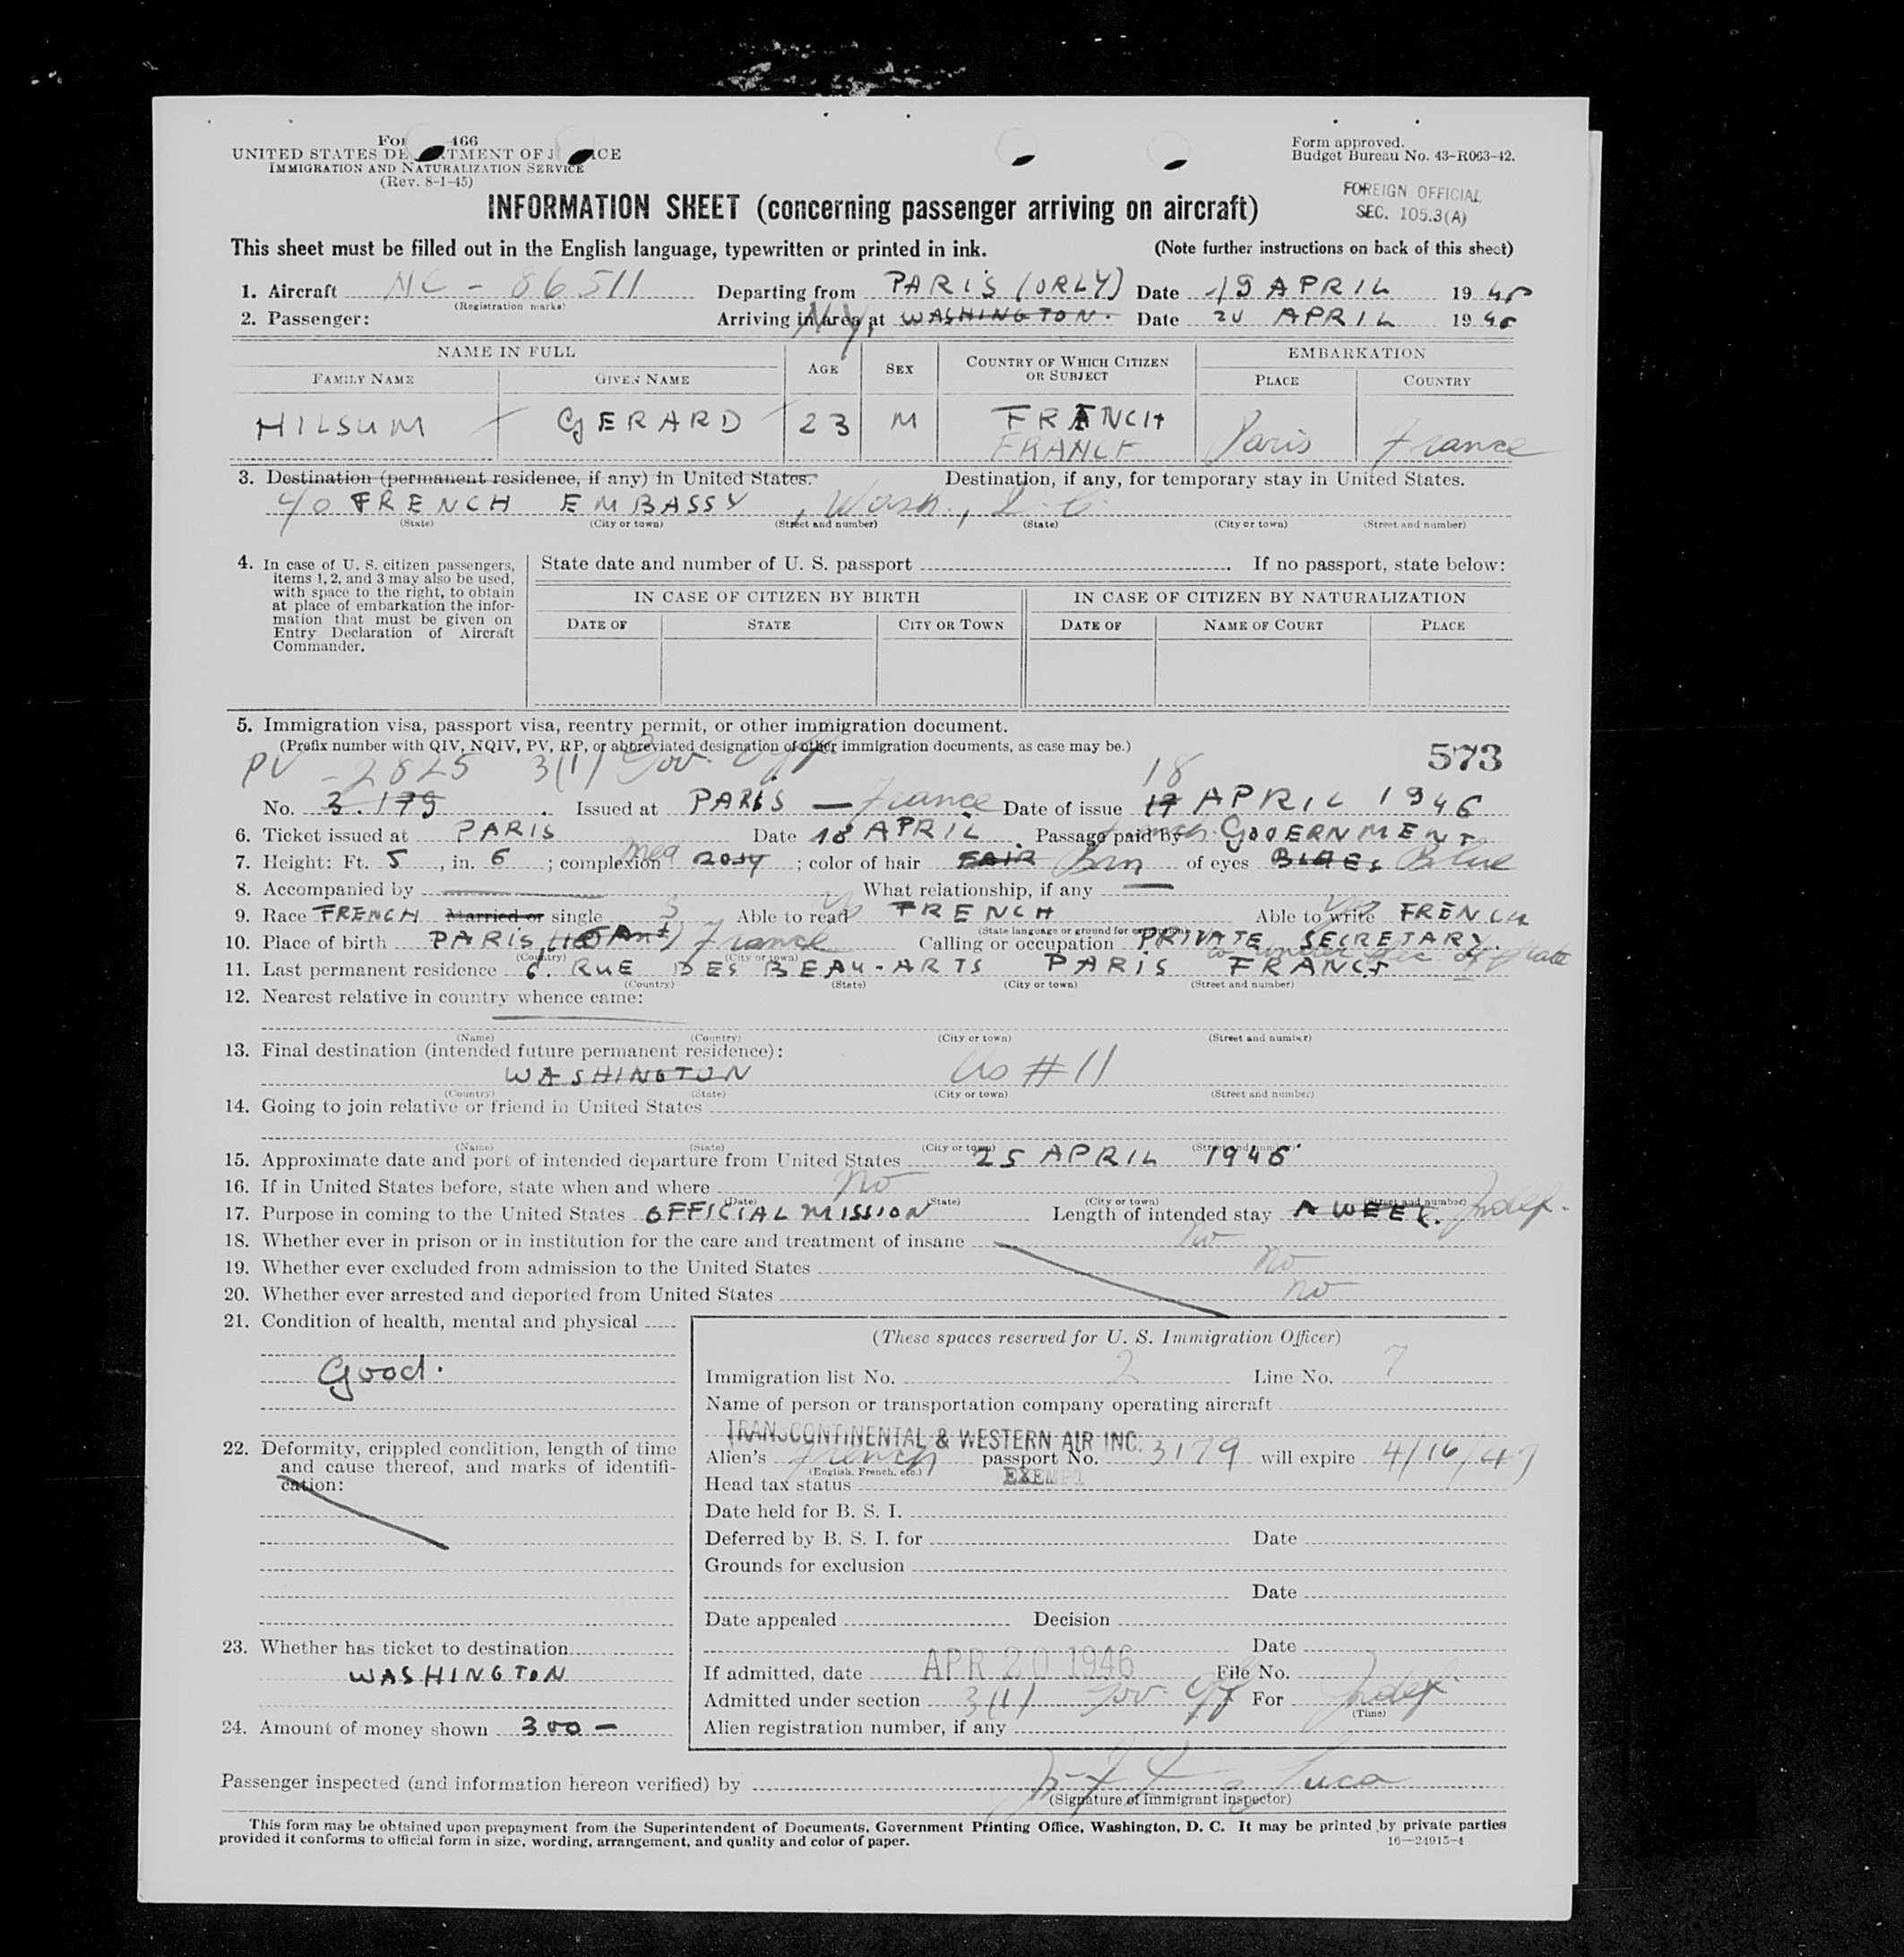 466
UNITED STATES DEPARTMENT OF JUSTICE
IMMIGRATION AND NATURALIZATION SERVICE
(Rev. 8-1-45)
Form approved.
Budget Bureau No. 43-R063-42.
FOREIGN OFFICIAL
SEC. 105.3(A)
INFORMATION SHEET (concerning passenger arriving on aircraft)
This sheet must be filled out in the English language, typewritten or printed in ink. (Note further instructions on back of this sheet)
1. Aircraft NC - 86511 Departing from PARIS (ORLY) Date 19 APRIL 1946
(Registration marks)
2. Passenger: Arriving in area at N.Y. WASHINGTON. Date 20 APRIL 1946
NAME IN FULL AGE SEX COUNTRY OF WHICH CITIZEN OR SUBJECT EMBARKATION
FAMILY NAME GIVEN NAME PLACE COUNTRY
HILSUM GERARD 23 M FRANCH Paris France
FRANCE
3. Destination (permanent residence, if any) in United States. Destination, if any, for temporary stay in United States.
c/o FRENCH EMBASSY, Wash., D.C.
(State) (City or town) (Street and number) (State) (City or town) (Street and number)
4. In case of U. S. citizen passengers, items 1, 2, and 3 may also be used, with space to the right, to obtain at place of embarkation the information that must be given on Entry Declaration of Aircraft Commander.
State date and number of U. S. passport . If no passport, state below:
IN CASE OF CITIZEN BY BIRTH IN CASE OF CITIZEN BY NATURALIZATION
DATE OF STATE CITY OR TOWN DATE OF NAME OF COURT PLACE
5. Immigration visa, passport visa, reentry permit, or other immigration document.
(Prefix number with QIV, NQIV, PV, RP, or abbreviated designation of other immigration documents, as case may be.)
573
PV - 2825 3(1) Gov. Off. 18
No. 3.179 . Issued at PARIS — France Date of issue 17 APRIL 1946
6. Ticket issued at PARIS Date 18 APRIL . Passage paid by French GOVERNMENT
7. Height: Ft. 5, in. 6; complexion med ROSY; color of hair FAIR Brn of eyes BLUES Blue
8. Accompanied by What relationship, if any —
9. Race FRENCH Married or single S Able to read yes FRENCH Able to write yes FRENCH
(State language or ground for exemption)
10. Place of birth PARIS France Calling or occupation PRIVATE SECRETARY.
(Country) (City or town)
to under Sec of State
11. Last permanent residence 6. RUE DES BEAU-ARTS PARIS FRANCE
(Country) (State) (City or town) (Street and number)
12. Nearest relative in country whence came:
(Name) (Country) (City or town) (Street and number)
13. Final destination (intended future permanent residence):
WASHINGTON As # 11
(Country) (State) (City or town) (Street and number)
14. Going to join relative or friend in United States
(Name) (State) (City or town) (Street and number)
15. Approximate date and port of intended departure from United States 25 APRIL 1946
16. If in United States before, state when and where no
(Date) (State) (City or town) (Street and number)
17. Purpose in coming to the United States OFFICIAL MISSION Length of intended stay A WEEK. Indef.
18. Whether ever in prison or in institution for the care and treatment of insane no
19. Whether ever excluded from admission to the United States no
20. Whether ever arrested and deported from United States no
21. Condition of health, mental and physical
Good.
22. Deformity, crippled condition, length of time and cause thereof, and marks of identification:
23. Whether has ticket to destination
WASHINGTON
24. Amount of money shown 300 -
(These spaces reserved for U. S. Immigration Officer)
Immigration list No. 2 Line No. 7
Name of person or transportation company operating aircraft
TRANSCONTINENTAL & WESTERN AIR INC.
Alien's French passport No. 3179 will expire 4/16/47
(English, French, etc.)
Head tax status EXEMPT
Date held for B. S. I.
Deferred by B. S. I. for Date
Grounds for exclusion
Date
Date appealed Decision
Date
If admitted, date APR 20 1946 File No.
Admitted under section 3(1) Gov. Off For Indef.
(Time)
Alien registration number, if any
Passenger inspected (and information hereon verified) by
(Signature of immigrant inspector)
This form may be obtained upon prepayment from the Superintendent of Documents, Government Printing Office, Washington, D. C. It may be printed by private parties
provided it conforms to official form in size, wording, arrangement, and quality and color of paper. 16—24915-4